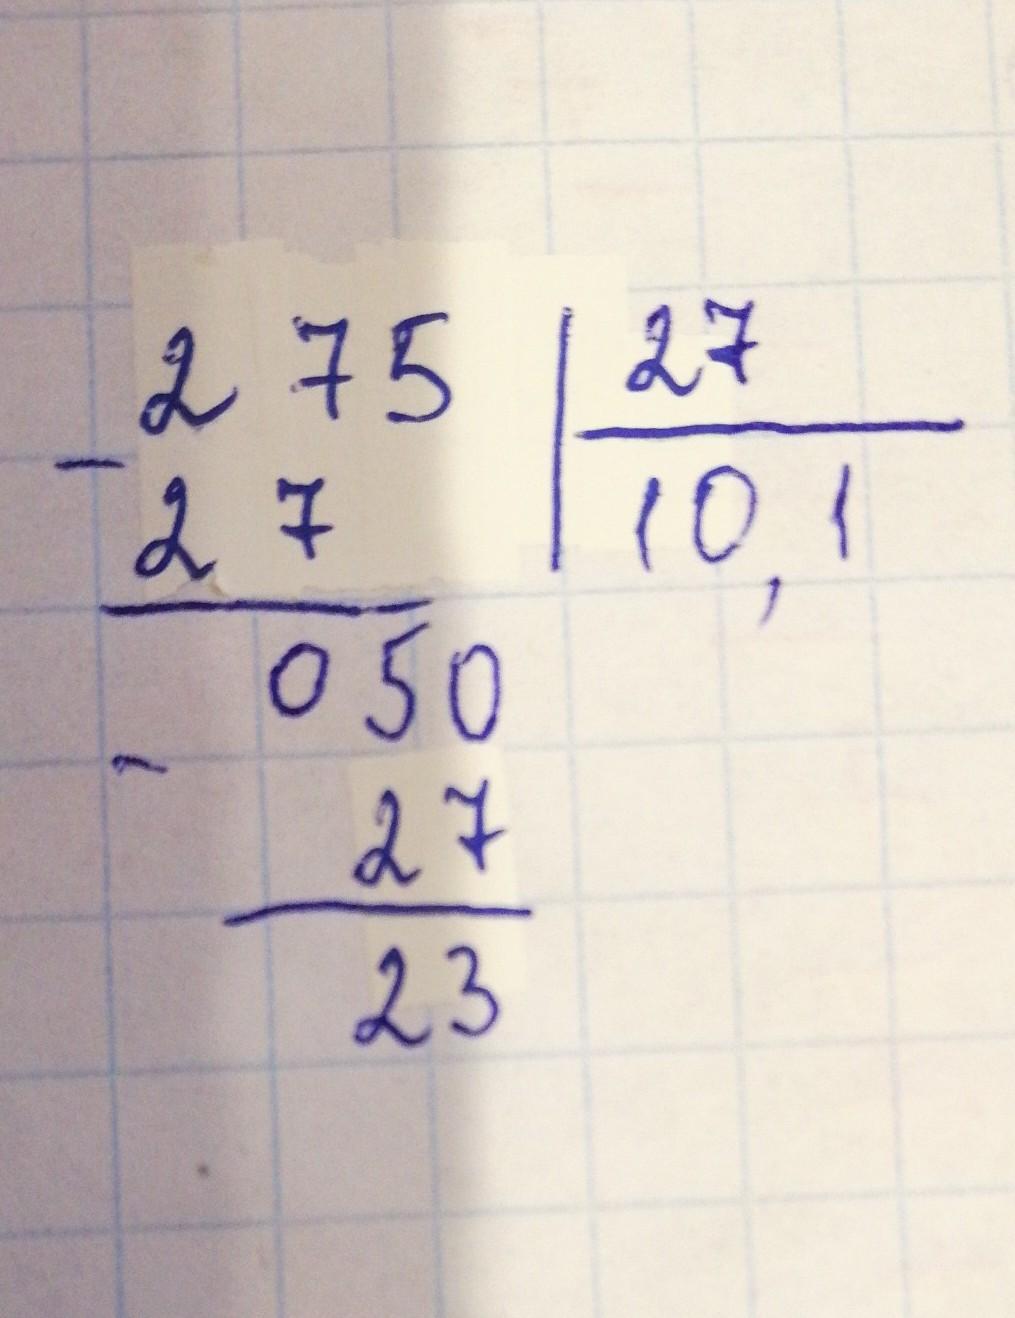 275 27
- 27 10,1
050
- 27
23